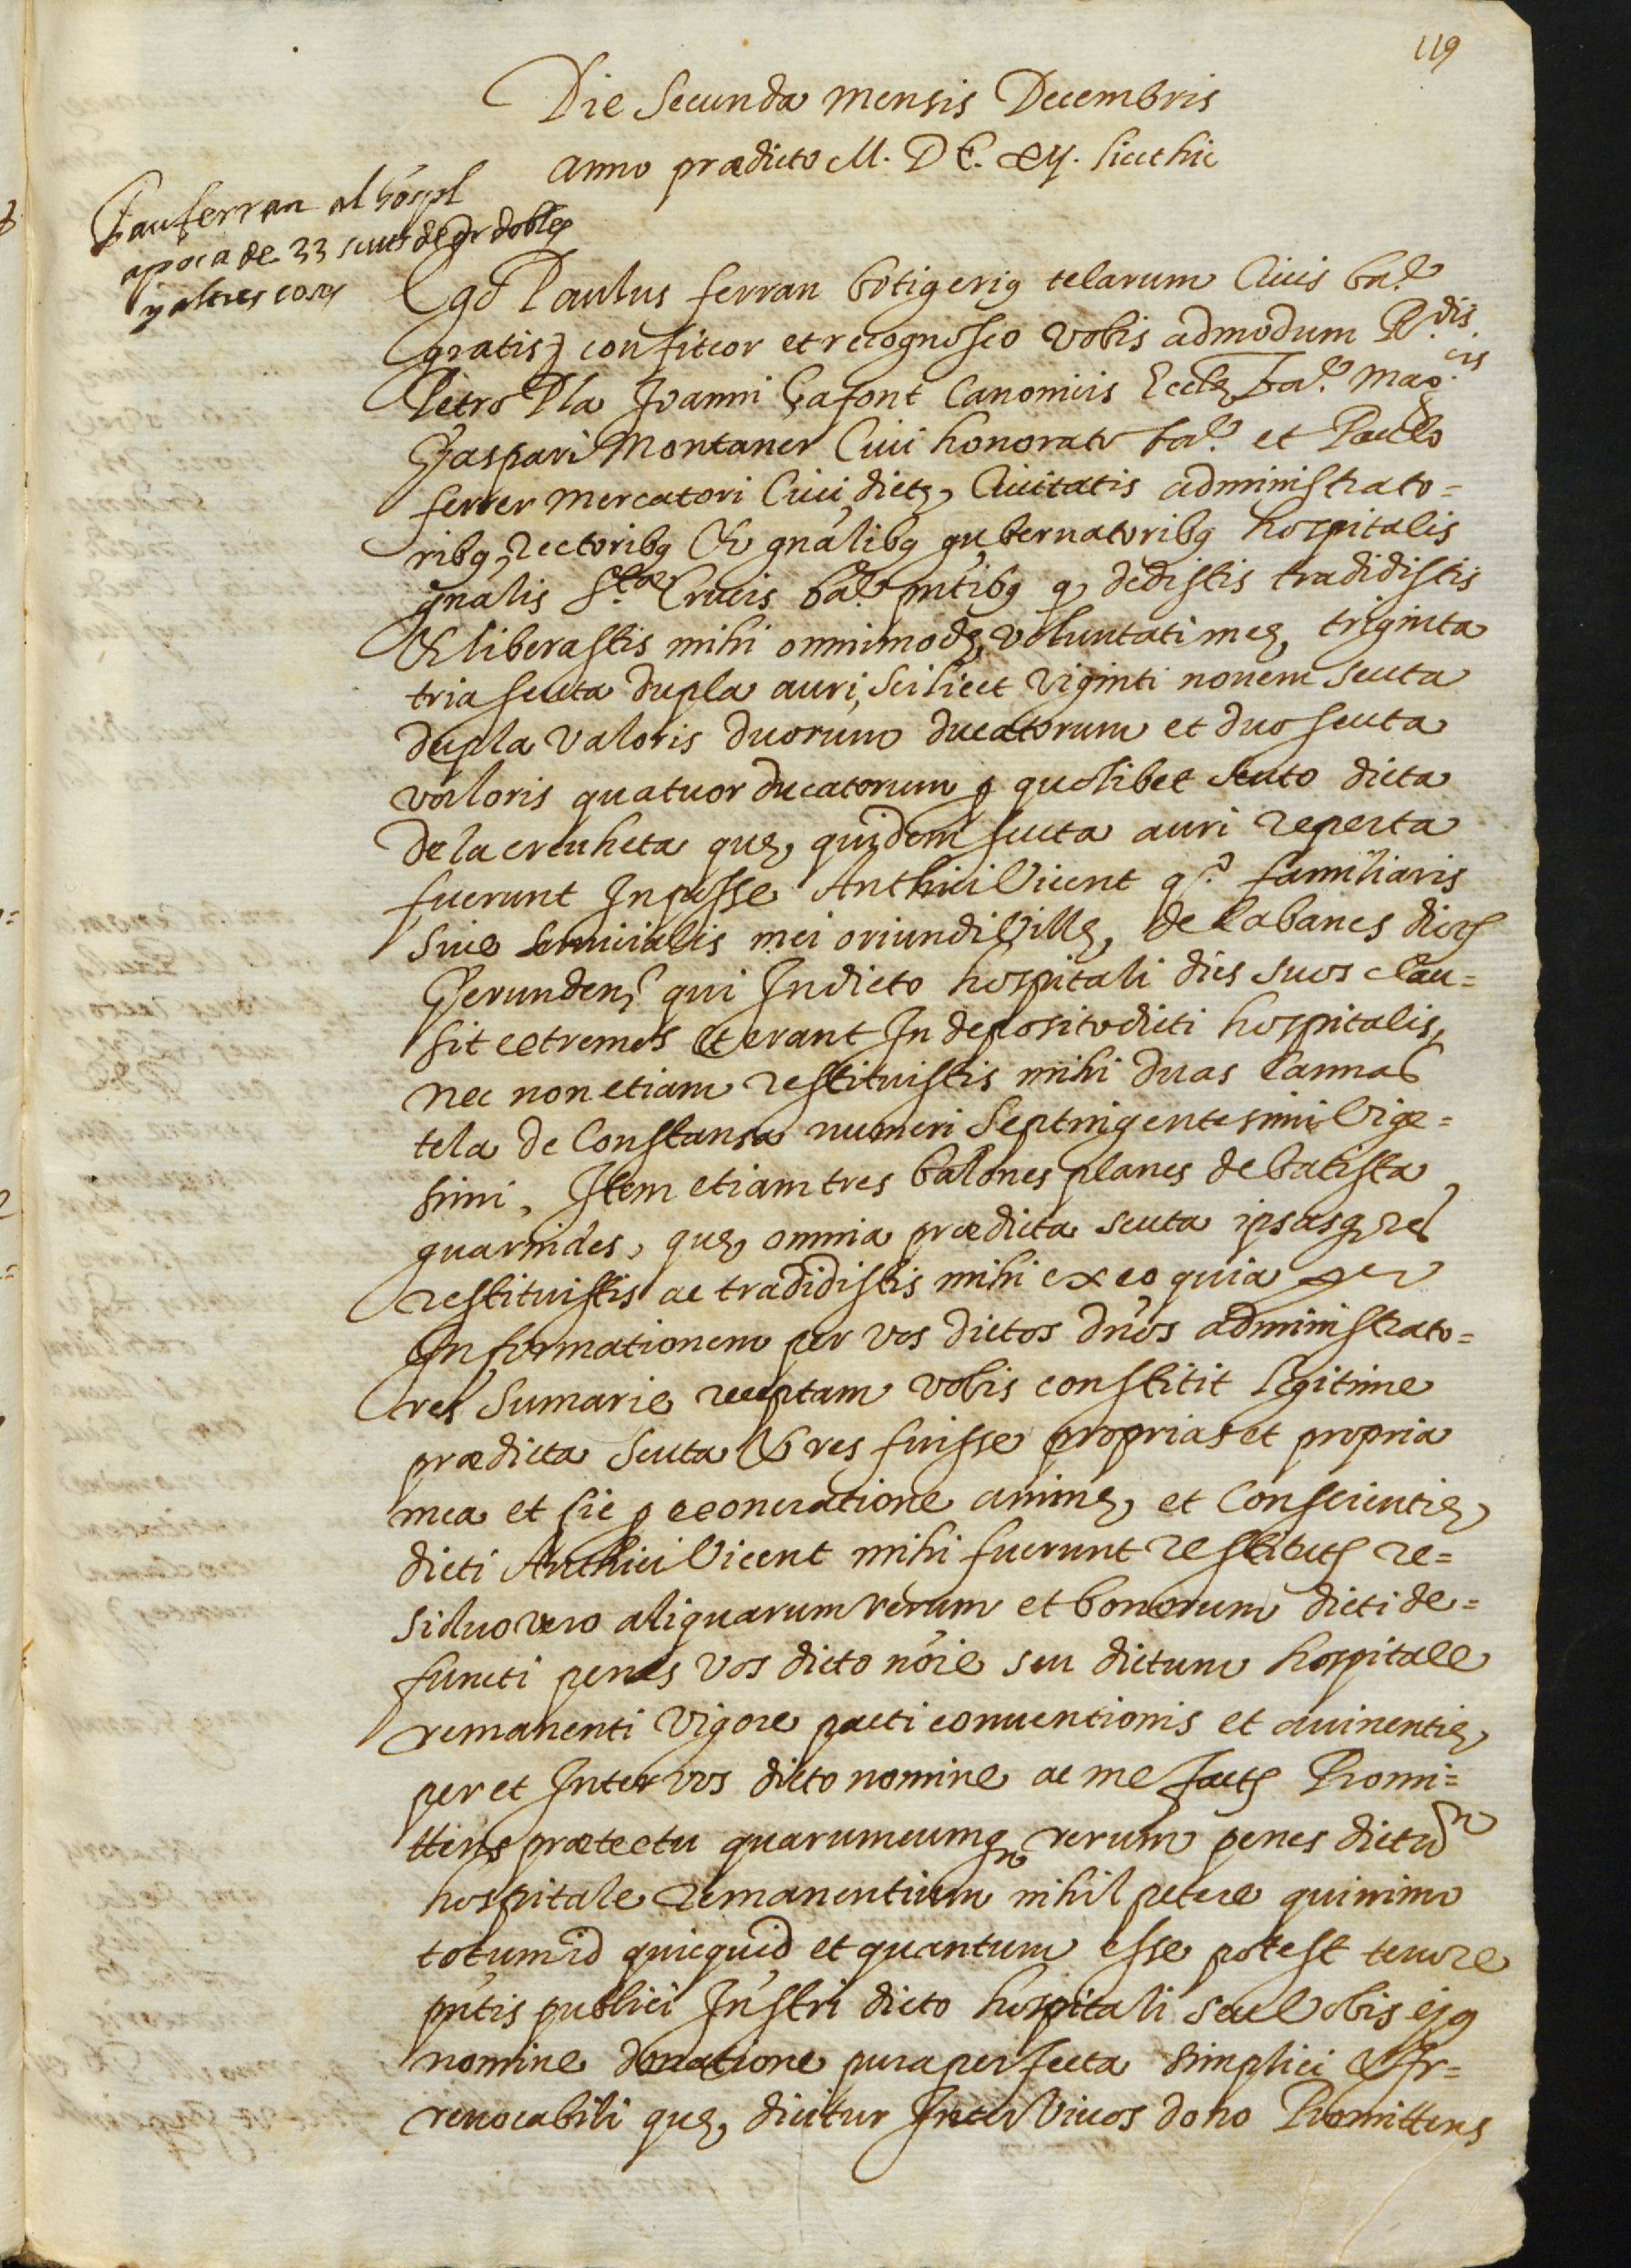 119
Die Secunda mensis Decembris
anno prædicto M. D C. xy. sicut hic
Pau ferran al hospl
apoca de 33 scuts de or dobles
y altres coses
Ego Paulus ferran botigerius telarum Civis bar.
gratis confiteor et recognosco vobis admodum Rdis.
Petro Pla Joanni Çafont Canonicis Eccle bar. Magcis
Gaspari Montaner Civi honorato bar. et Paulo
ferrer mercatori Civi dictę Civitatis administrato=
ribq rectoribq & gnalibq gubernatoribq hospitalis
gnalis Stæ Crucis bar. pntibq q dedistis tradidistis
& liberastis mihi omnimodę voluntati meę triginta
tria scuta dupla auri, scilicet viginti novem scuta
dupla valoris duorum ducatorum et duo scuta
valoris quatuor ducatorum p quolibet scuto dicta
de la creuheta quę quidem scuta auri reperta
fuerunt In posse Anthici Vicent qo. familiaris
sive servicialis mei oriundi Villę de Cabanes dioc
Gerunden. qui In dicto hospitali dies suos clau=
sit extremos et erant In deposito dicti hospitalis,
nec non etiam restituistis mihi duas cannas
tela de Constansa numeri Septingentesimi Vige=
simi, Item etiam tres balones planes de batista
guarnides, quę omnia prædicta scuta ipsasq res
restituistis ac tradidistis mihi ex eo quia per
Informationem per vos dictos dnos administrato=
res Sumarie receptam vobis constitit legitime
prædicta scuta & res fuisse proprias et propria
mea et sic p exoneratione animę et Conscientię
dicti Anthici Vicent mihi fuerunt restituts re=
siduo vero aliquarum rerum et bonorum dicti de=
functi penes vos dicto noie seu dictum hospitale
remanenti vigore pacti conventionis et avinentię
per et Inter vos dicto nomine ac me facts Promi=
ttens prætextu quarumcumq rerum penes dictum
hospitale remanentium nihil petere quinimo
totum id quicquid et quantum esse potest tenore
pntis publici Instri dicto hospitali seu Vobis ejq
nomine donatione pura perfecta simplici & Ir=
revocabili quę dicitur Inter Vivos dono Promittens